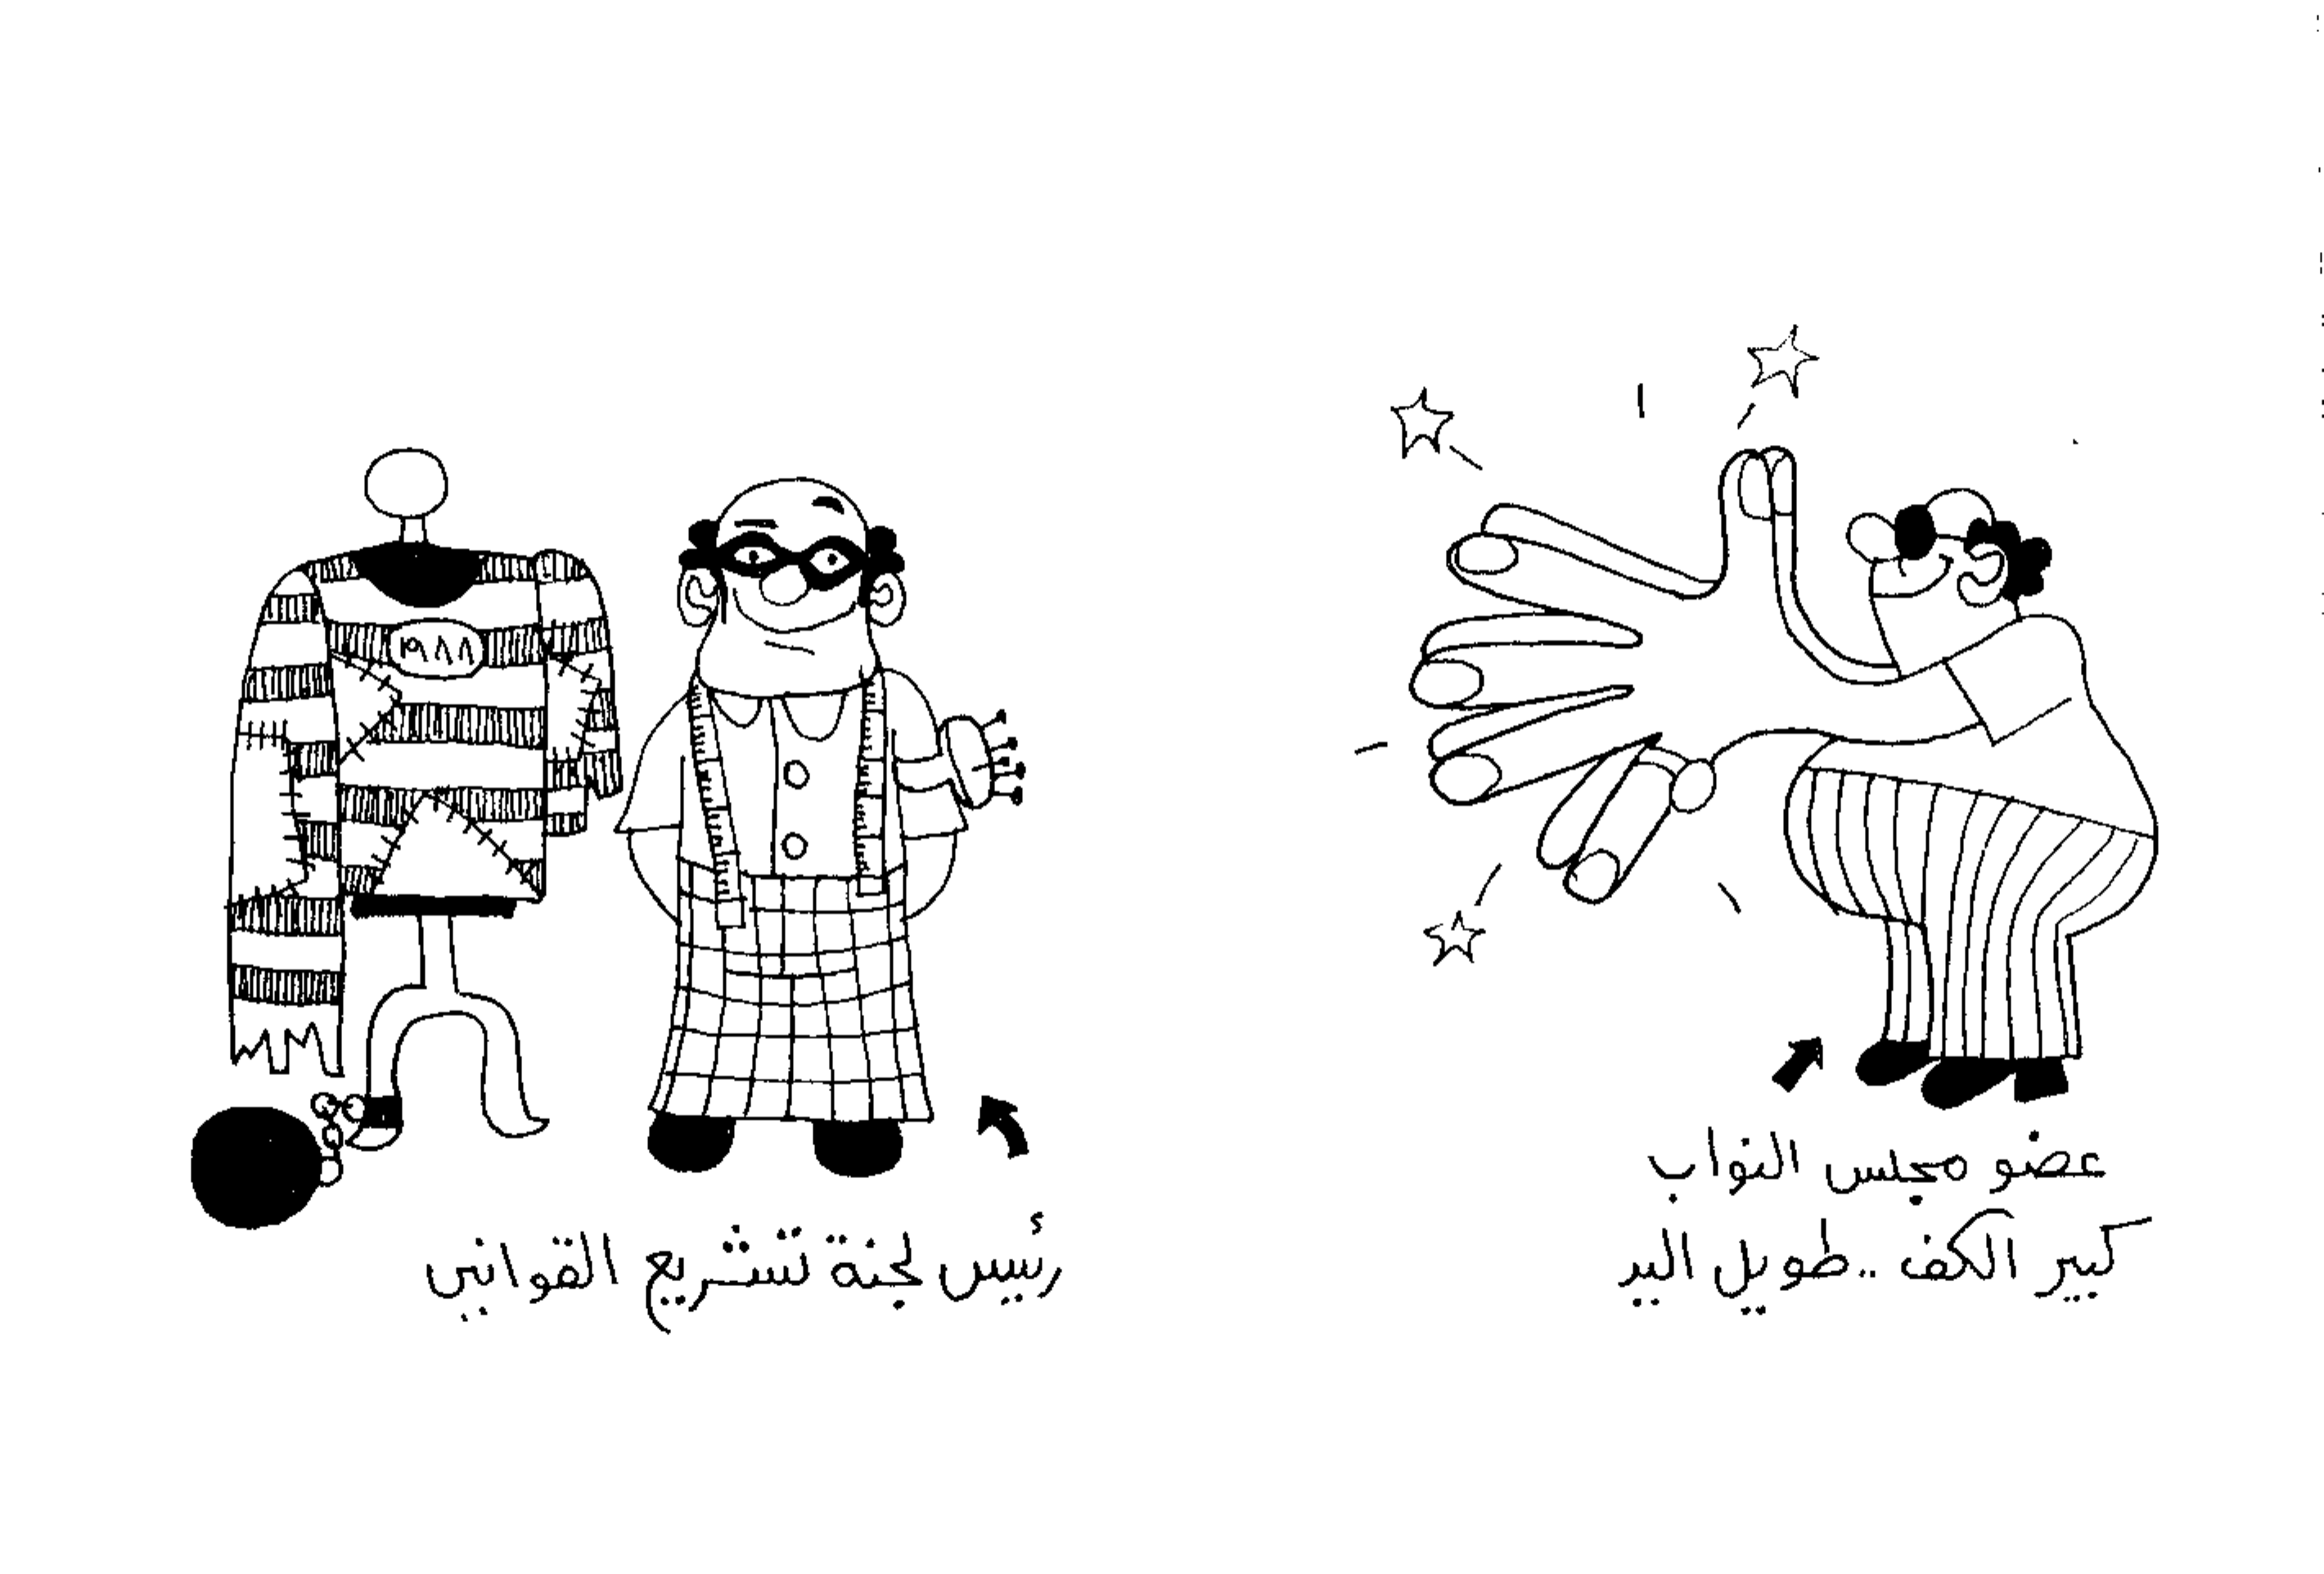 عضو مجلس النواب
كبير الكف .. طويل اليد
رئيس لجنة تشريع القوانين
١٩٨٨